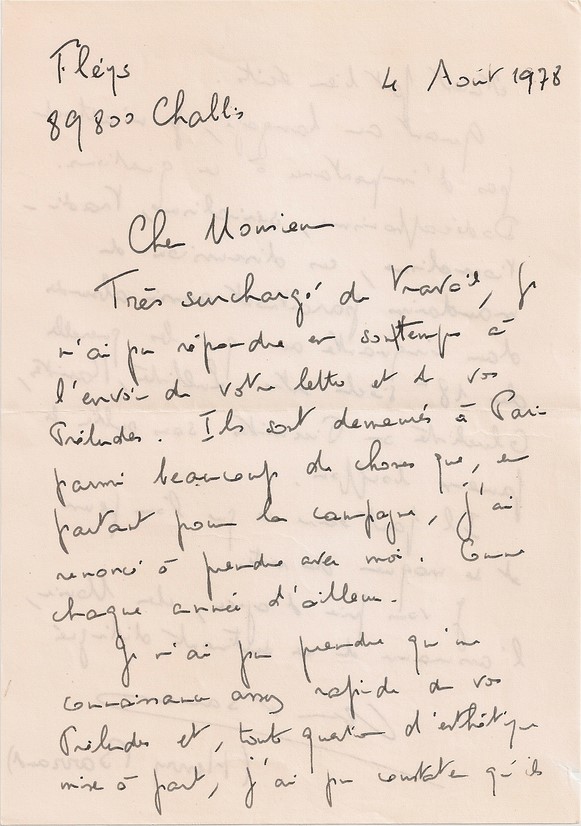 Fléys
4 Août 1978
89800 Chablis
Cher Monsieur
Très surchargé de travail, je
n'ai pu répondre en son temps à
l'envoi de votre lettre et de vos
Préludes. Ils sont demeurés à Paris
parmi beaucoup de choses que, en
partant pour la campagne, j'ai
renoncé à prendre avec moi. Comme
chaque année d'ailleurs.
Je n'ai pu prendre qu'une
connaissance assez rapide de vos
Préludes et, toute question d'esthétique
mise à part, j'ai pu constater qu'ils